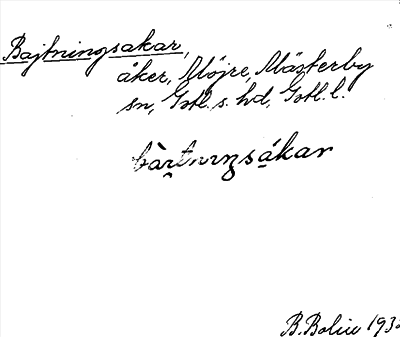 Bajtningsakar,
åker, Mojre, Mästerby
sn, Gotl. s. hd, Gotl. l.
B. Bolin 193